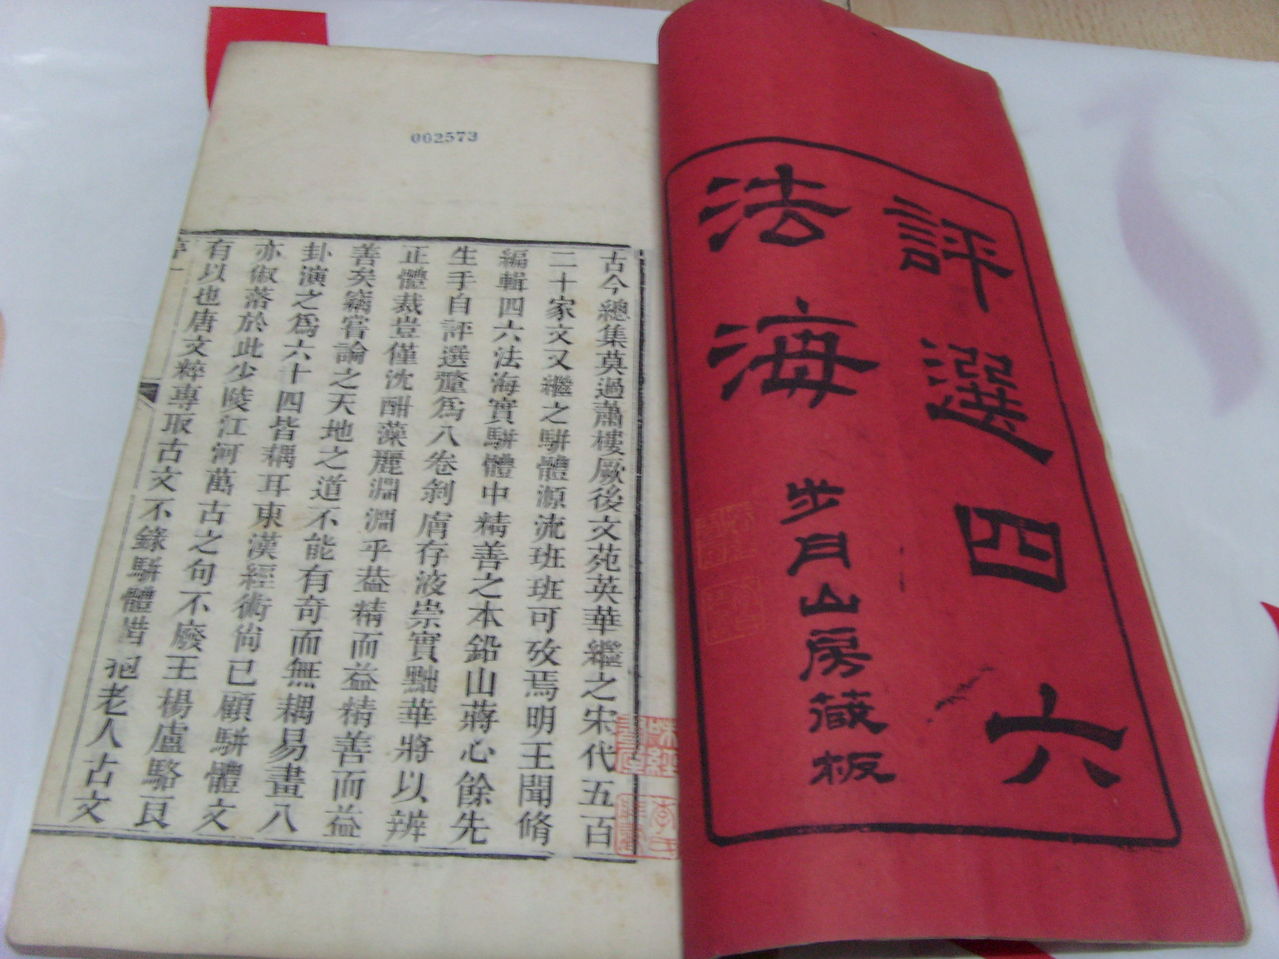 評選四六
法海
步月山房藏板
002573
古今總集莫過蕭樓厥後文苑英華繼之宋代五百
二十家文又繼之駢體源流班班可攷焉明王聞脩
編輯四六法海實駢體中精善之本鉛山蔣心餘先
生手自評選釐爲八卷剝膚存液崇實黜華將以辨
正體裁豈僅沈酣藻麗淵淵乎葢精而益精善而益
善矣竊嘗論之天地之道不能有奇而無耦易畫八
卦演之爲六十四皆耦耳東漢經術尙已顧駢體文
亦俶落於此少陵江河萬古之句不廢王楊盧駱良
有以也唐文粹專取古文不錄駢體惜抱老人古文
序一